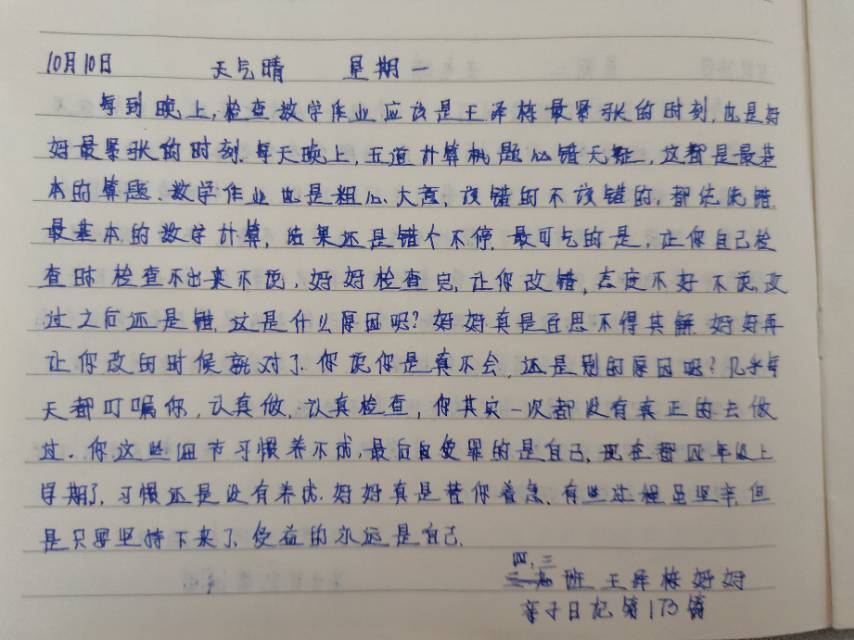 10月10日 天气晴 星期一
每到晚上,检查数学作业应该是王泽栋最紧张的时刻,也是好
好最紧张的时刻.每天晚上,五道计算机题心错无疑,这都是最基
本的算题.数学作业也是粗心大意,该错的不该错的,都错
最基本的数学计算,结果还是错个不停.最可气的是,让你自己检
查时检查不出来不说,好好检查完,让你改错,态度不好不说,改
过之后还是错.这是什么原因呢?好好真是百思不得其解.好好再
让你改的时候就对了.你说你是真不会,还是别的原因呢?几乎每
天都叮嘱你,认真做,认真检查,你其实一次都没有真正的去做
过.你这些细节习惯养不成,最后自受罪的是自己.现在都四年级上
学期了,习惯还是没有养成.好好真是替你着急.有些过程虽坚辛,但
是只要坚持下来了,受益的永远是自己.
四.三
班 王泽栋好好
亲子日记第173篇